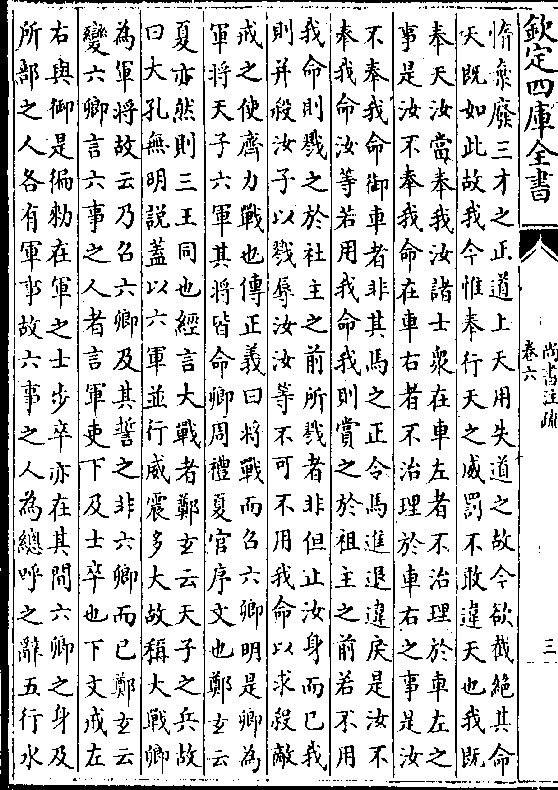 欽定四庫全書
尚書注疏
卷六
三
惰棄廢三才之正道上天用失道之故今欲截絶其命
天既如此故我今惟奉行天之威罰不敢違天也我既
奉天汝當奉我汝諸士衆在車左者不治理於車左之
事是汝不奉我命在車右者不治理於車右之事是汝
不奉我命御車者非其馬之正令馬進退違戾是汝不
奉我命汝等若用我命我則賞之於祖主之前若不用
我命則戮之於社主之前所戮者非但止汝身而已我
則并殺汝子以戮辱汝汝等不可不用我命以求殺敵
戒之使齊力戰也傳正義曰將戰而召六卿明是卿為
軍將天子六軍其將皆命卿周禮夏官序文也鄭玄云
夏亦然則三王同也經言大戰者鄭玄云天子之兵故
曰大孔無明説蓋以六軍並行威震多大故稱大戰卿
為軍將故云乃召六卿及其誓之非六卿而已鄭玄云
變六卿言六事之人者言軍吏下及士卒也下文戒左
右與御是徧勑在軍之士步卒亦在其間六卿之身及
所部之人各有軍事故六事之人為總呼之辭五行水